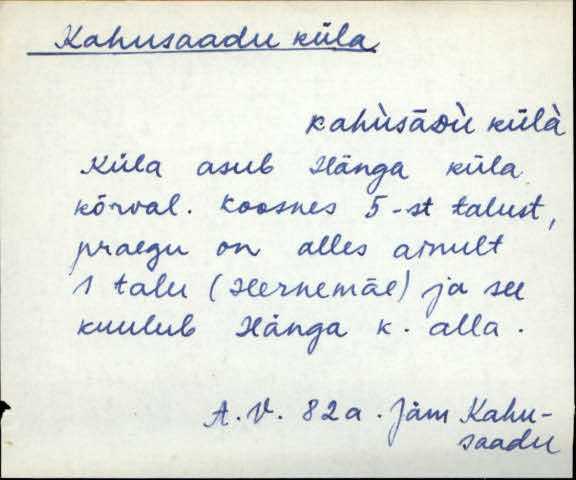 Kahusaadu küla
kahùsāᴅù külà
Küla asub Hänga küla
kõrval. Koosnes 5-st talust,
praegu on alles ainult
1 talu (Hernemäe) ja see
kuulub Hänga k. alla.
A. V. 82a. Jäm Kahu-
saadu